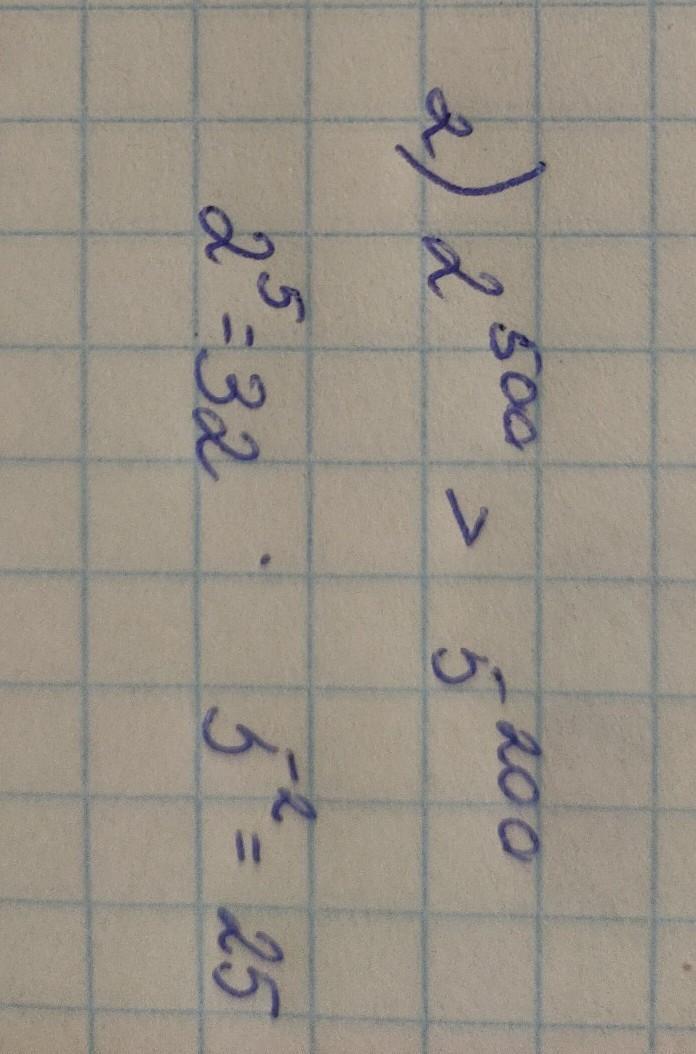 2) 2⁵⁰⁰ > 5²⁰⁰
2⁵ = 32 . 5² = 25